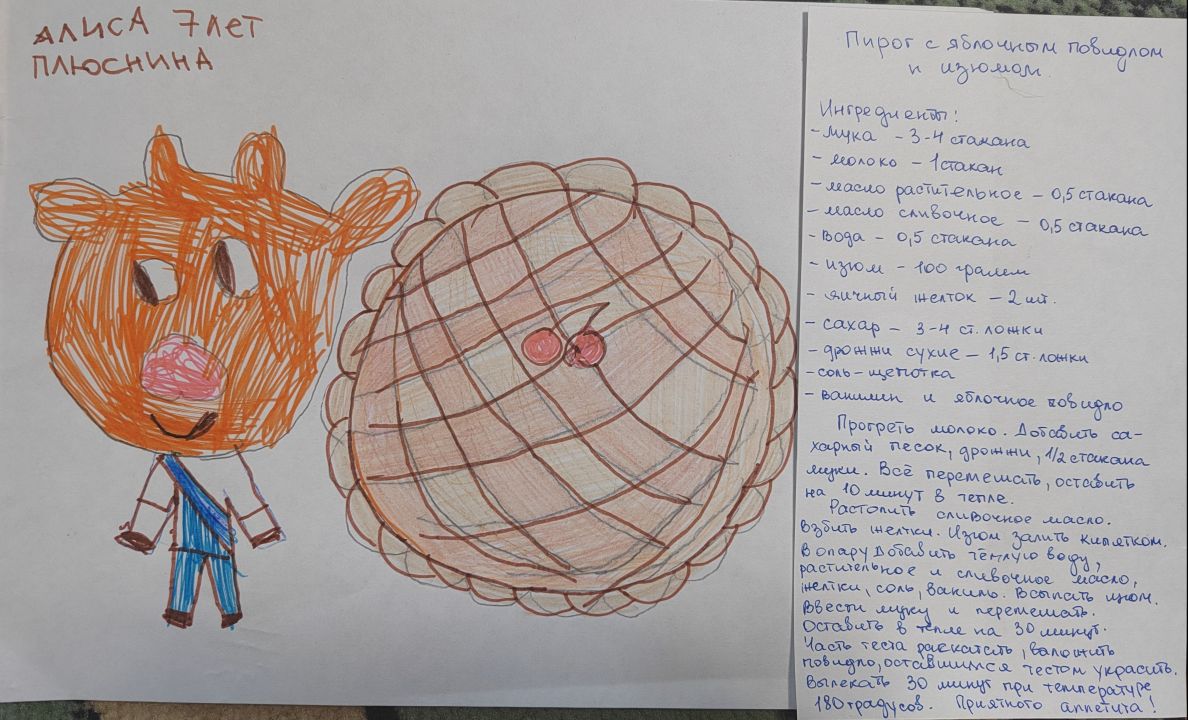 АЛИСА 7 лет
ПЛЮСНИНА
Пирог с яблочным повидлом
и изюмом.
Ингредиенты:
- мука - 3-4 стакана
- молоко - 1 стакан
- масло растительное - 0,5 стакана
- масло сливочное - 0,5 стакана
- вода - 0,5 стакана
- изюм - 100 грамм
- яичный желток - 2 шт.
- сахар - 3-4 ст. ложки
- дрожжи сухие - 1,5 ст. ложки
- соль - щепотка
- ванилин и яблочное повидло
Прогреть молоко. Добавить са-
харный песок, дрожжи, 1/2 стакана
муки. Всё перемешать, оставить
на 10 минут в тепле.
Растопить сливочное масло.
Взбить желтки. Изюм залить кипятком.
В опару добавить тёплую воду,
растительное и сливочное масло,
желтки, соль, ваниль. Всыпать изюм.
Ввести муку и перемешать.
Оставить в тепле на 30 минут.
Часть теста раскатать, выложить
повидло, оставшимся тестом украсить.
Выпекать 30 минут при температуре
180 градусов. Приятного аппетита!